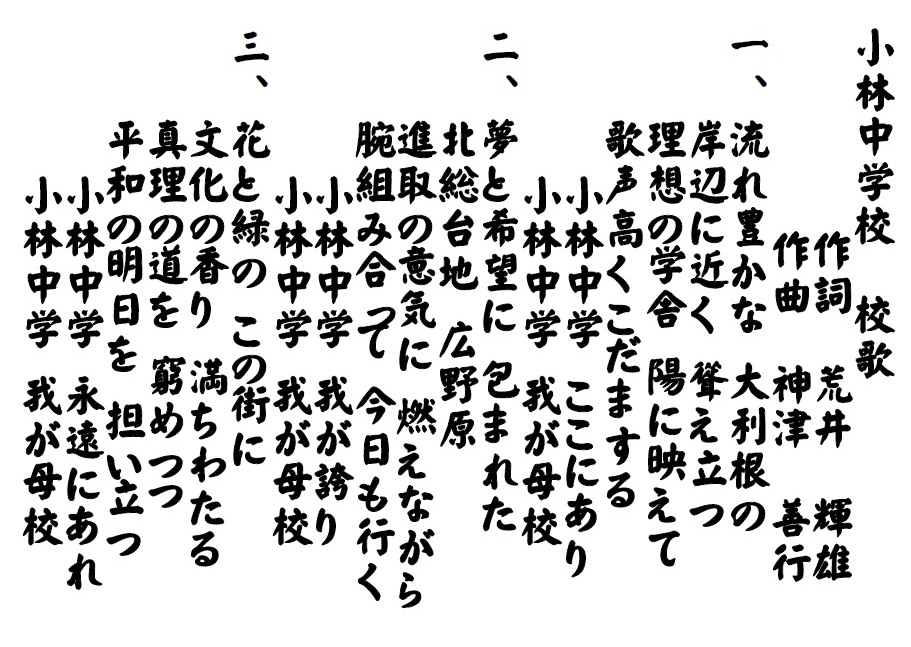 小林中学校　校歌
作詞　荒井　輝雄
作曲　神津　善行
一、
流れ豊かな　大利根の
岸辺に近く　聳え立つ
理想の学舎　陽に映えて
歌声高くこだまする
小林中学　ここにあり
小林中学　我が母校
二、
夢と希望に　包まれた
北総台地　広野原
進取の意気に　燃えながら
腕組み合って　今日も行く
小林中学　我が誇り
小林中学　我が母校
三、
花と緑の　この街に
文化の香り　満ちわたる
真理の道を　窮めつつ
平和の明日を　担い立つ
小林中学　永遠にあれ
小林中学　我が母校